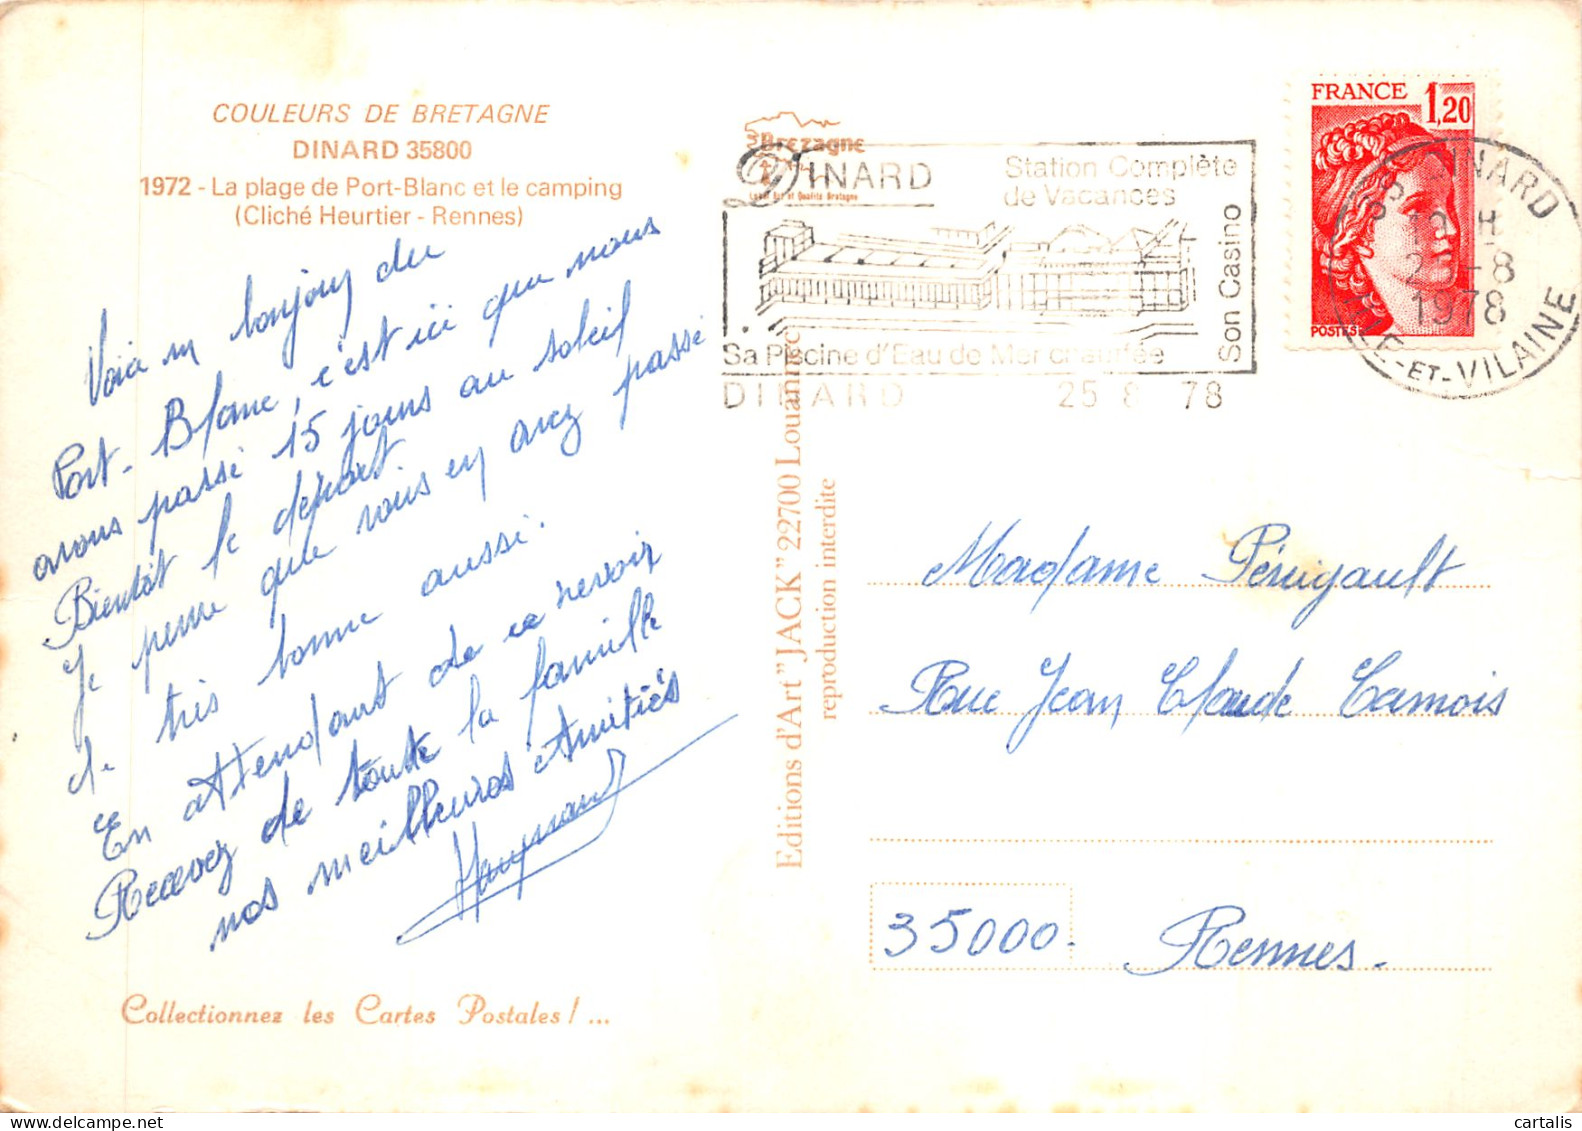 COULEURS DE BRETAGNE
DINARD 35800
1972 - La plage de Port-Blanc et le camping
(Cliché Heurtier - Rennes)
Voici un bonjour du
Port-Blanc, c'est ici que nous
avons passé 15 jours au soleil
Bientôt le départ
Je pense que vous en avez passé
de très bonne aussi.
En Attendant de ce revoir
Recevez de toute la famille
nos meilleures Amitiés
Collectionnez les Cartes Postales ! ...
Editions d'Art "JACK" 22700 Louannec
reproduction interdite
Bretagne
DINARD
Station Complète
de Vacances
Son Casino
Sa Piscine d'Eau de Mer chauffée
DINARD 25 8 78
FRANCE 1,20
POSTES
DINARD
-8
1978
ILLE-ET-VILAINE
Madame Périgault
Rue Jean Claude Camois
35000. Rennes.
cartalis